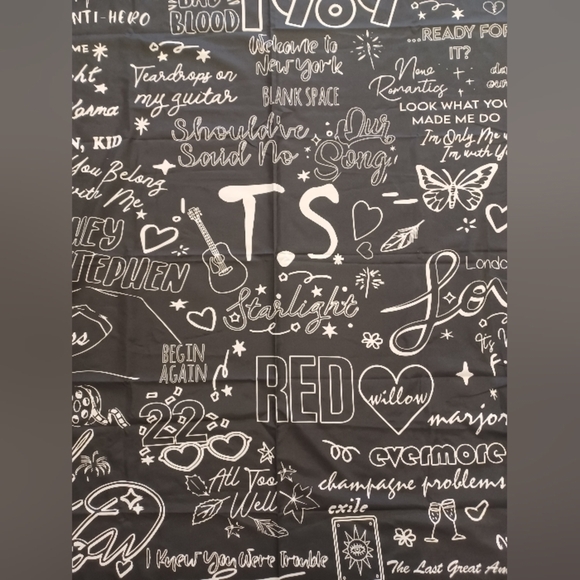 ANTI-HERO
BAD
BLOOD
1989
Welcome to
New York
...READY FOR
IT?
Teardrops on
my guitar
BLANK SPACE
New
Romantics
LOOK WHAT YOU
MADE ME DO
I'm Only Me
I'm with Yo
Karma
KID
Should've
Said No
Our
Song
You Belong
with Me
T.S
HEY
STEPHEN
Starlight
London
BEGIN
AGAIN
RED
willow
marjor
22
evermore
All Too
Well
champagne problems
exile
I Knew You Were Trouble
The Last Great Am